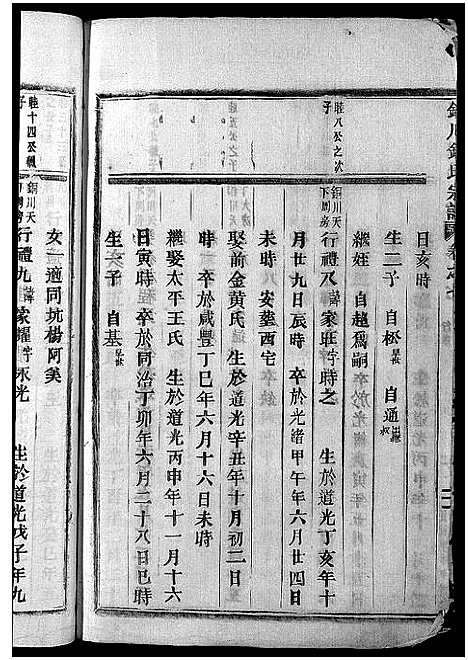 日亥時
生二子 自松 自通
繼姪 自趙爲嗣
睦八公之次子
銅川天下房
行禮八諱家莊字時之 生於道光丁亥年十
月廿九日辰時 卒於光緒甲午年六月廿四日
未時 八安塟西宅
娶前金黃氏 生於道光辛丑年十月初二日
時 卒於咸豐丁巳年六月十六日未時
繼娶太平王氏 生於道光丙申年十一月十六
日寅時 卒於同治丁卯年六月二十八日巳時
生一子 自基
女一 適同坑楊阿美
睦十四公
子
銅川天
房
行禮九諱家耀字永光 生於道光戊子年九